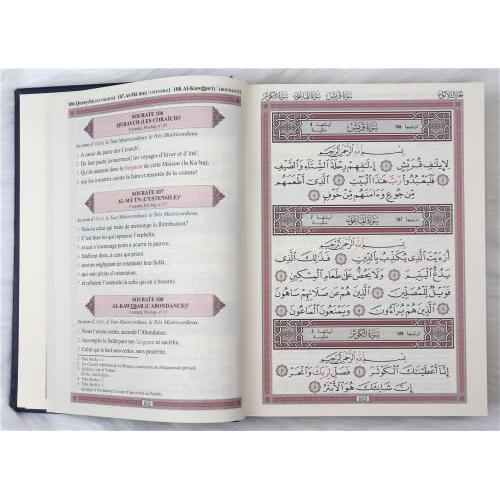 106.Quraych(CORAÏCH) 107.Al-Mâ'ûn(L'USTENSILE) 108.Al-Kawthar(L'ABONDANCE)
SOURATE 106
QURAYCH (LES CORAÏCH)¹
Au nom d'Allah, le Tout Miséricordieux, le Très Miséricordieux.
1. A cause du pacte des Coraïch²,
2. De leur pacte [concernant] les voyages d'hiver et d'été,
3. Qu'ils adorent donc le Seigneur de cette Maison (la Ka'ba),
4. qui les a nourris contre la faim et rassurés de la crainte!
SOURATE 107
AL-MÂ'ÛN (L'USTENSILE)³
Au nom d'Allah, le Tout Miséricordieux, le Très Miséricordieux.
1. Vois-tu celui qui traite de mensonge la Rétribution?
2. C'est bien lui qui repousse l'orphelin,
3. et qui n'encourage point à nourrir le pauvre.
4. Malheur donc, à ceux qui prient
5. tout en négligeant (et retardant) leur Salât,
6. qui sont pleins d'ostentation,
7. et refusent l'ustensile (à celui qui en a besoin).
SOURATE 108
AL-KAWTHAR (L'ABONDANCE)
Au nom d'Allah, le Tout Miséricordieux, le Très Miséricordieux.
1. Nous t'avons certes, accordé l'Abondance.
2. Accomplis la Salât pour ton Seigneur et sacrifie.
3. Celui qui te hait sera certes, sans postérité.
602
سورة الكوثر سورة الماعون سورة قريش
سورة قريش 106
بسم الله الرحمن الرحيم
لِإِيلَافِ قُرَيْشٍ ١ إِۦلَافِهِمْ رِحْلَةَ الشِّتَاءِ وَالصَّيْفِ
٢ فَلْيَعْبُدُوا رَبَّ هَٰذَا الْبَيْتِ ٣ الَّذِي أَطْعَمَهُم
مِّن جُوعٍ وَءَامَنَهُم مِّنْ خَوْفٍ ٤
سورة الماعون 107
بسم الله الرحمن الرحيم
أَرَءَيْتَ الَّذِي يُكَذِّبُ بِالدِّينِ ١ فَذَٰلِكَ الَّذِي
يَدُعُّ الْيَتِيمَ ٢ وَلَا يَحُضُّ عَلَىٰ طَعَامِ الْمِسْكِينِ ٣
فَوَيْلٌ لِّلْمُصَلِّينَ ٤ الَّذِينَ هُمْ عَن صَلَاتِهِمْ سَاهُونَ
٥ الَّذِينَ هُمْ يُرَاءُونَ ٦ وَيَمْنَعُونَ الْمَاعُونَ ٧
سورة الكوثر 108
بسم الله الرحمن الرحيم
إِنَّا أَعْطَيْنَاكَ الْكَوْثَرَ ١ فَصَلِّ لِرَبِّكَ وَانْحَرْ
٢ إِنَّ شَانِئَكَ هُوَ الْأَبْتَرُ ٣
602